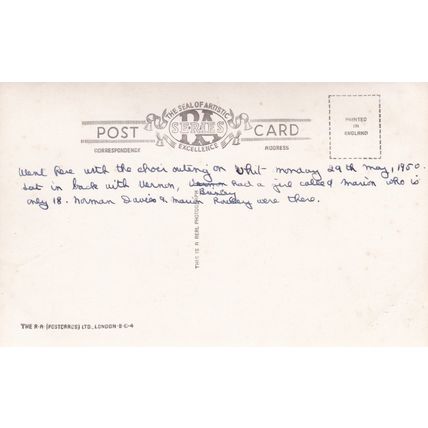 THE SEAL OF ARTISTIC
RA
SERIES
EXCELLENCE
POST CARD
CORRESPONDENCE ADDRESS
PRINTED
IN
ENGLAND
Went here with the choir outing on Whit-monday 29th may, 1950.
Sat in back with Vernon, Vernon had a girl called Marion who is
only 18. Norman Davies & Marion were there.
THIS IS A REAL PHOTOGRAPH
THE R·A (POSTCARDS) LTD., LONDON·E·C·4